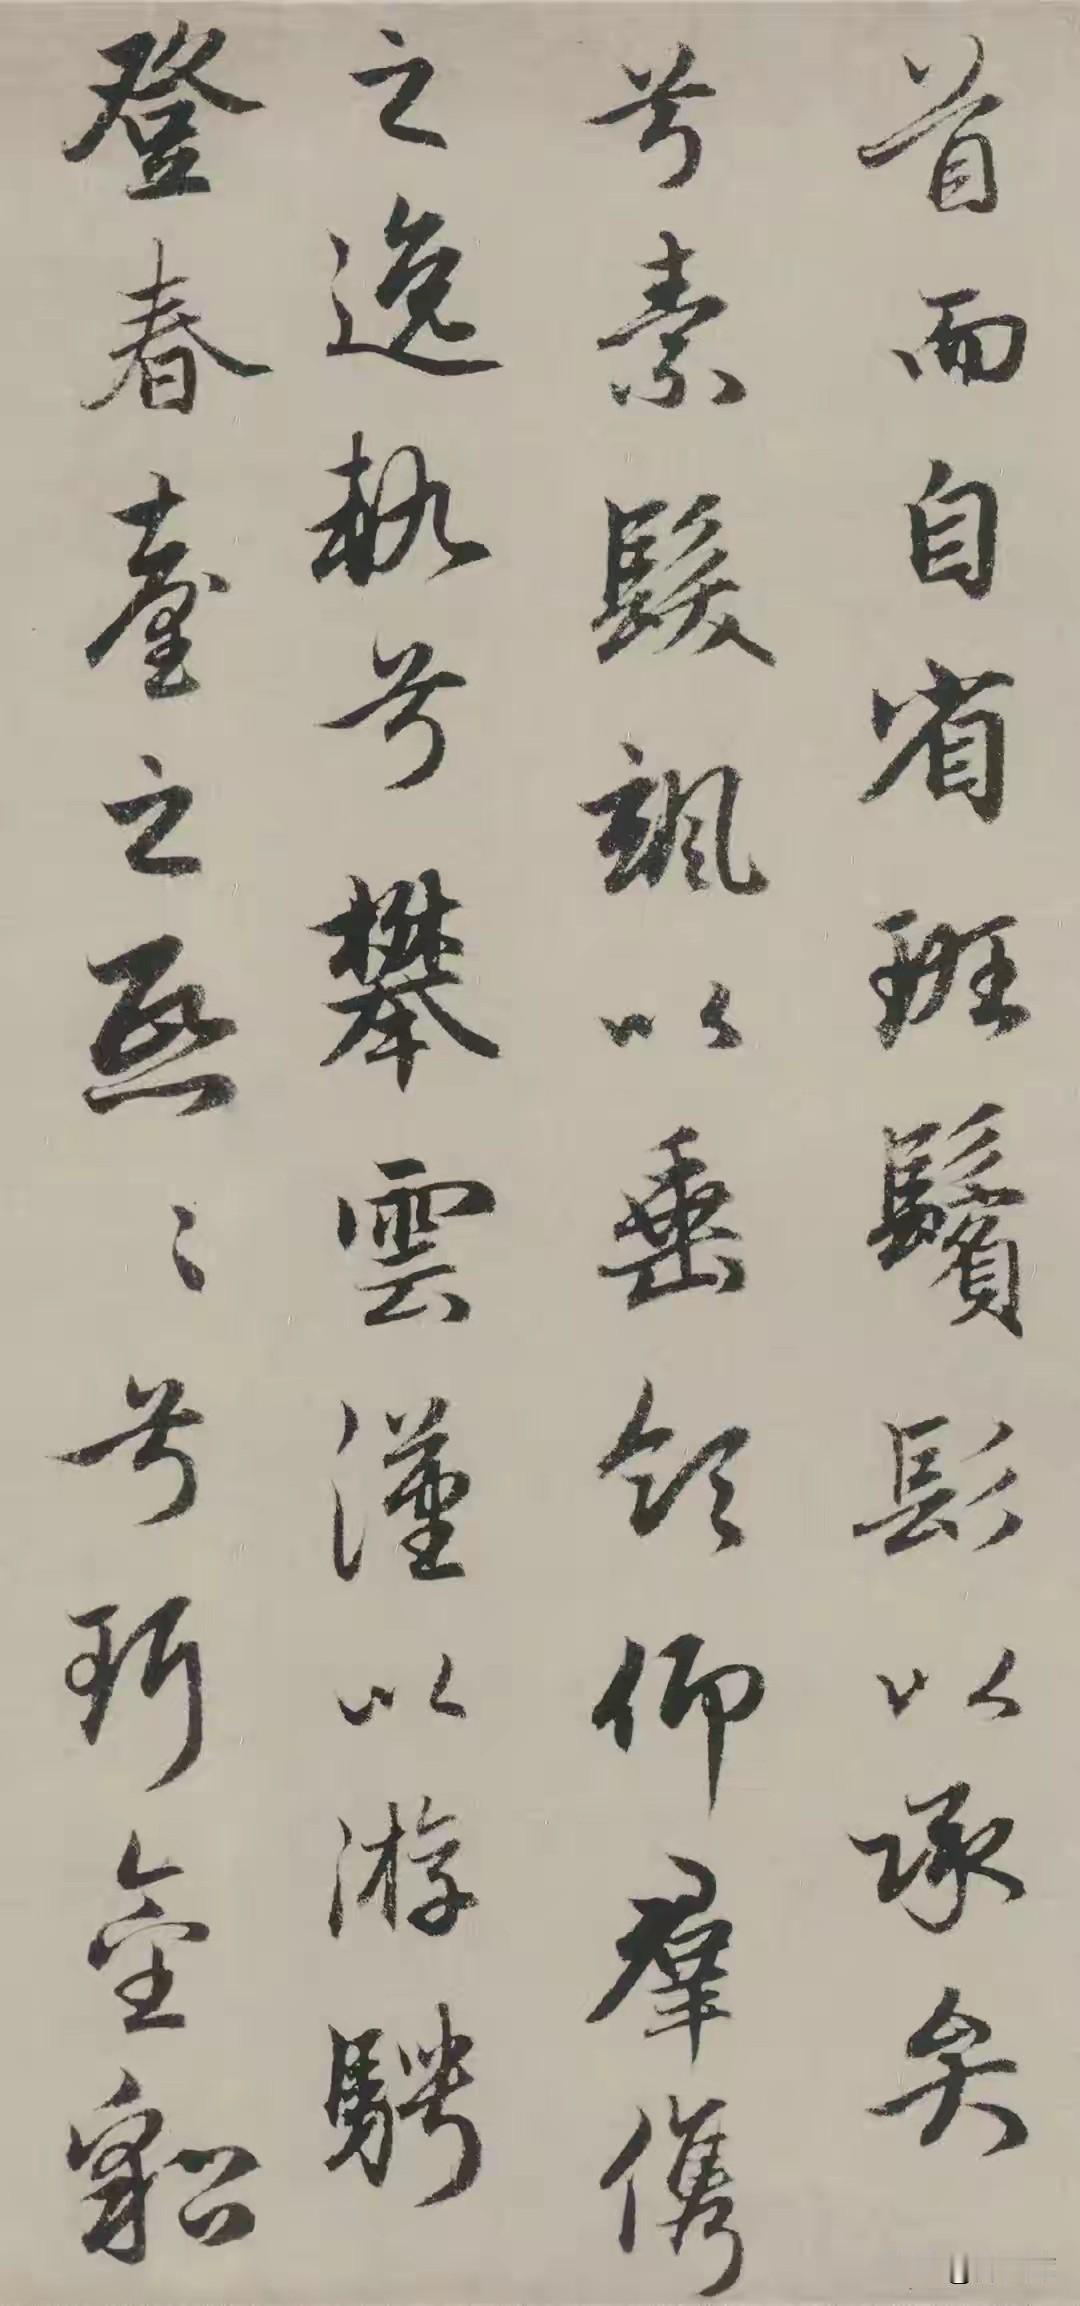 首而自省班鬢髟以承弁
兮素髮颯以垂領仰羣儁
之逸軌兮攀雲漢以游騁
登春臺之熙〻兮珥金貂